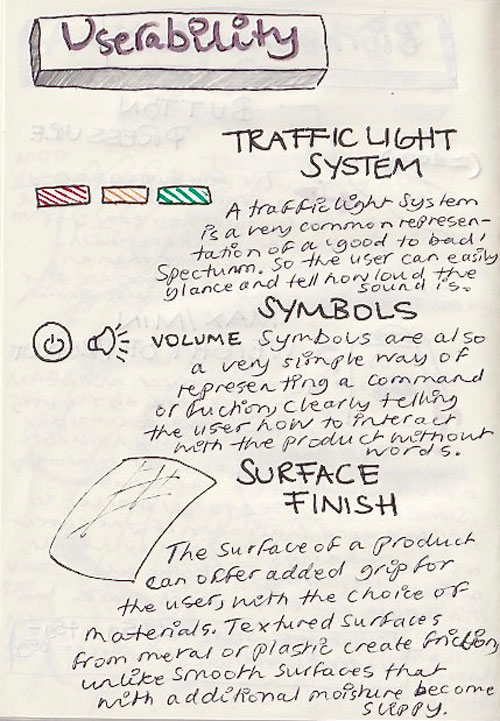 Userability
TRAFFIC LIGHT
SYSTEM
A traffic light system
is a very common represen-
tation of a 'good to bad'
Spectrum. So the user can easily
glance and tell how loud the
sound is.
SYMBOLS
VOLUME Symbols are also
a very simple way of
representing a command
or fuction, clearly telling
the user how to interact
with the product without
words.
SURFACE
FINISH
The surface of a product
can offer added grip for
the user, with the choice of
materials. Textured surfaces
from metal or plastic create friction,
unlike smooth surfaces that
with additional moisture become
slippy.